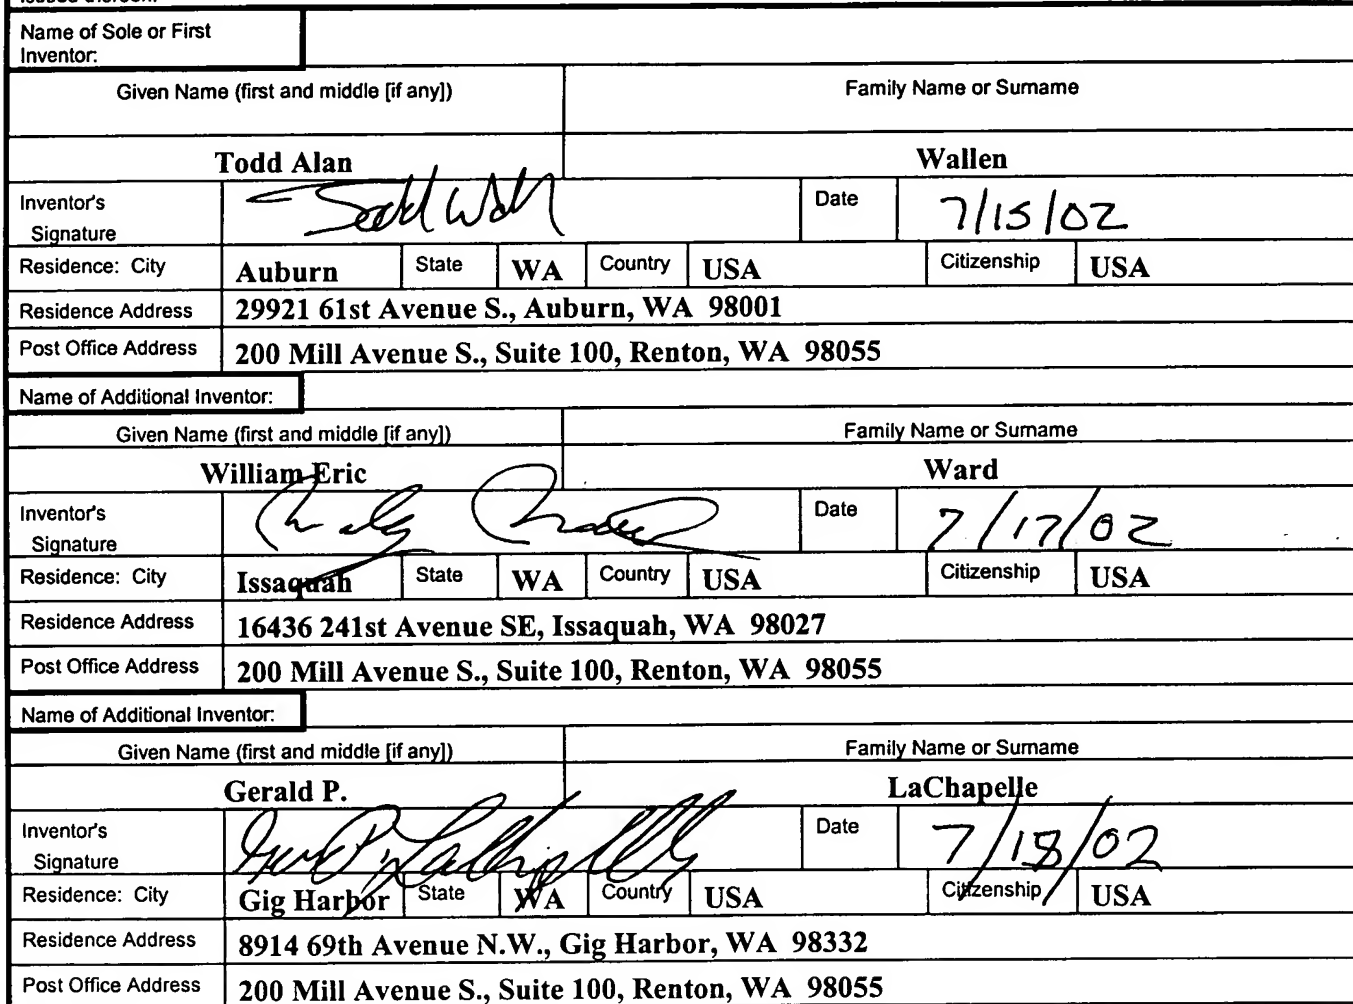 Name of Sole or First
Inventor:
Given Name (first and middle [if any]) Family Name or Surname
Todd Alan Wallen
Inventor's
Signature Todd Wall Date 7/15/02
Residence: City Auburn State WA Country USA Citizenship USA
Residence Address 29921 61st Avenue S., Auburn, WA 98001
Post Office Address 200 Mill Avenue S., Suite 100, Renton, WA 98055
Name of Additional Inventor:
Given Name (first and middle [if any]) Family Name or Surname
William Eric Ward
Inventor's
Signature Date 7/17/02
Residence: City Issaquah State WA Country USA Citizenship USA
Residence Address 16436 241st Avenue SE, Issaquah, WA 98027
Post Office Address 200 Mill Avenue S., Suite 100, Renton, WA 98055
Name of Additional Inventor:
Given Name (first and middle [if any]) Family Name or Surname
Gerald P. LaChapelle
Inventor's
Signature Date 7/18/02
Residence: City Gig Harbor State WA Country USA Citizenship USA
Residence Address 8914 69th Avenue N.W., Gig Harbor, WA 98332
Post Office Address 200 Mill Avenue S., Suite 100, Renton, WA 98055